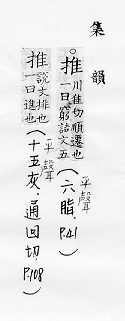 集韻
。推 川隹切順遷也一曰窮詰文五（平聲 六脂，P.41）
推 說文排也一曰進也（平聲 十五灰，通回切，P.108）